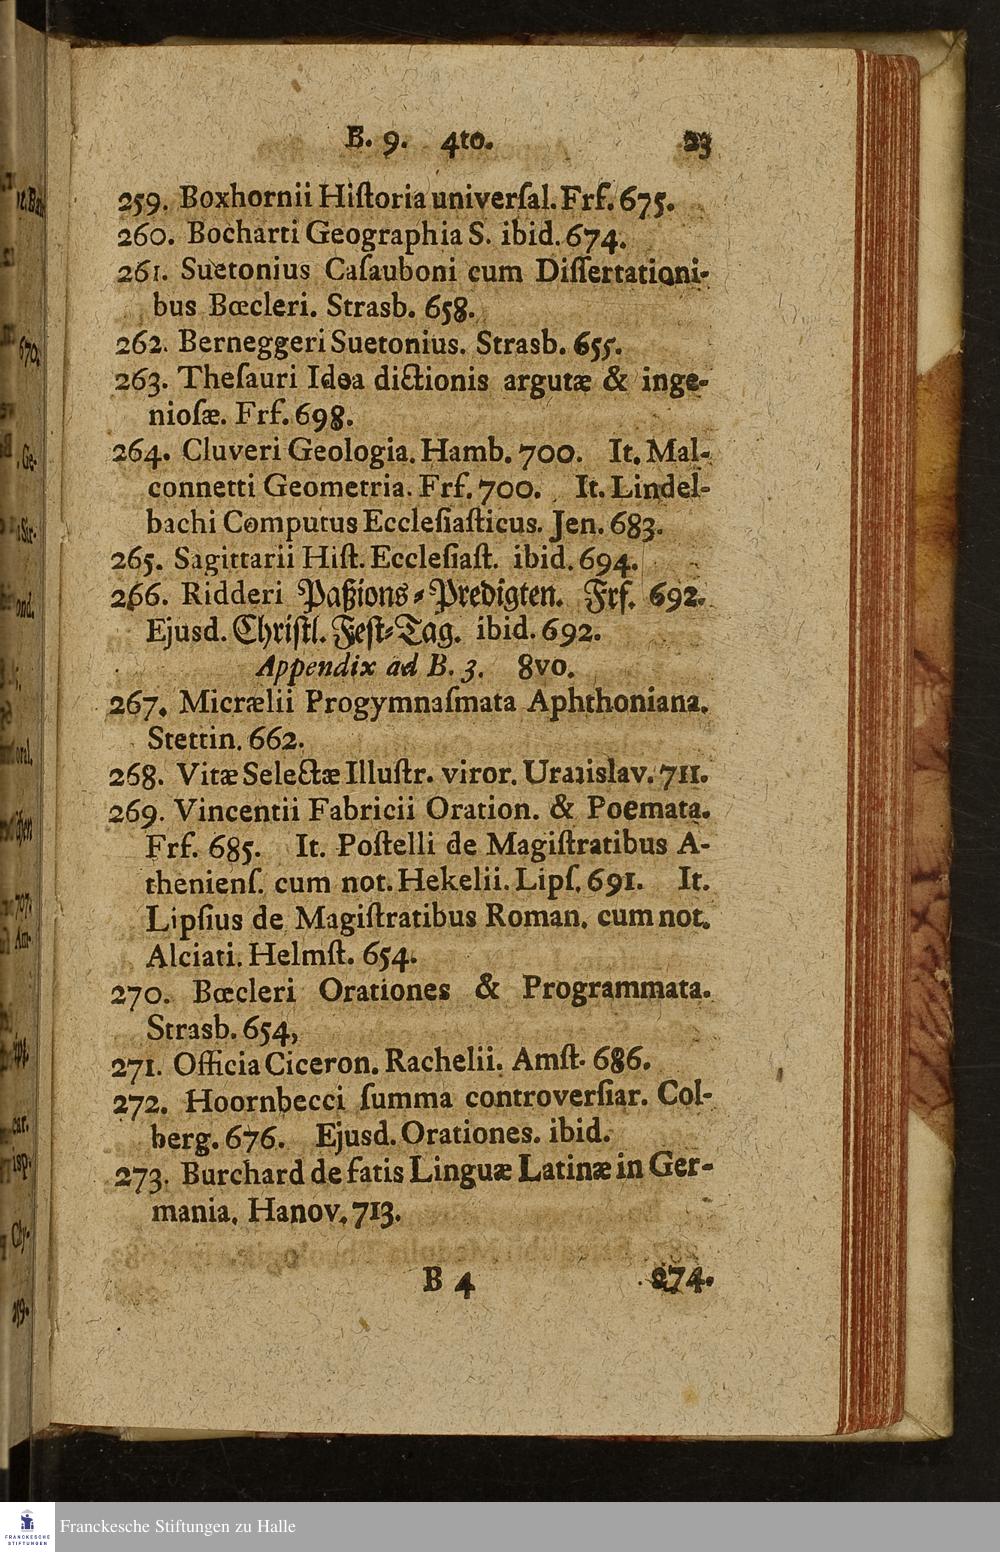 B. 9. 4to. 23
259. Boxhornii Hiſtoria univerſal. Frf. 675.
260. Bocharti Geographia S. ibid. 674.
261. Suetonius Caſauboni cum Diſſertationi-
bus Bœcleri. Strasb. 658.
262. Berneggeri Suetonius. Strasb. 655.
263. Theſauri Idea dictionis argutæ & inge-
nioſæ. Frf. 698.
264. Cluveri Geologia. Hamb. 700. It. Mal-
connetti Geometria. Frf. 700. It. Lindel-
bachi Computus Eccleſiaſticus. Jen. 683.
265. Sagittarii Hiſt. Eccleſiaſt. ibid. 694.
266. Ridderi Paßions-Predigten. Frf. 692.
Ejusd. Chriſtl. Feſt-Tag. ibid. 692.
Appendix ad B. 3. 8vo.
267. Micrælii Progymnaſmata Aphthoniana.
Stettin. 662.
268. Vitæ Selectæ Illuſtr. viror. Uratislav. 711.
269. Vincentii Fabricii Oration. & Poemata.
Frf. 685. It. Poſtelli de Magiſtratibus A-
thenienſ. cum not. Hekelii. Lipſ. 691. It.
Lipſius de Magiſtratibus Roman. cum not.
Alciati. Helmſt. 654.
270. Bœcleri Orationes & Programmata.
Strasb. 654,
271. Officia Ciceron. Rachelii. Amſt. 686.
272. Hoornbecci ſumma controverſiar. Col-
berg. 676. Ejusd. Orationes. ibid.
273. Burchard de fatis Linguæ Latinæ in Ger-
mania. Hanov. 713.
B 4 274.
FRANCKESCHE
STIFTUNGEN
Franckesche Stiftungen zu Halle